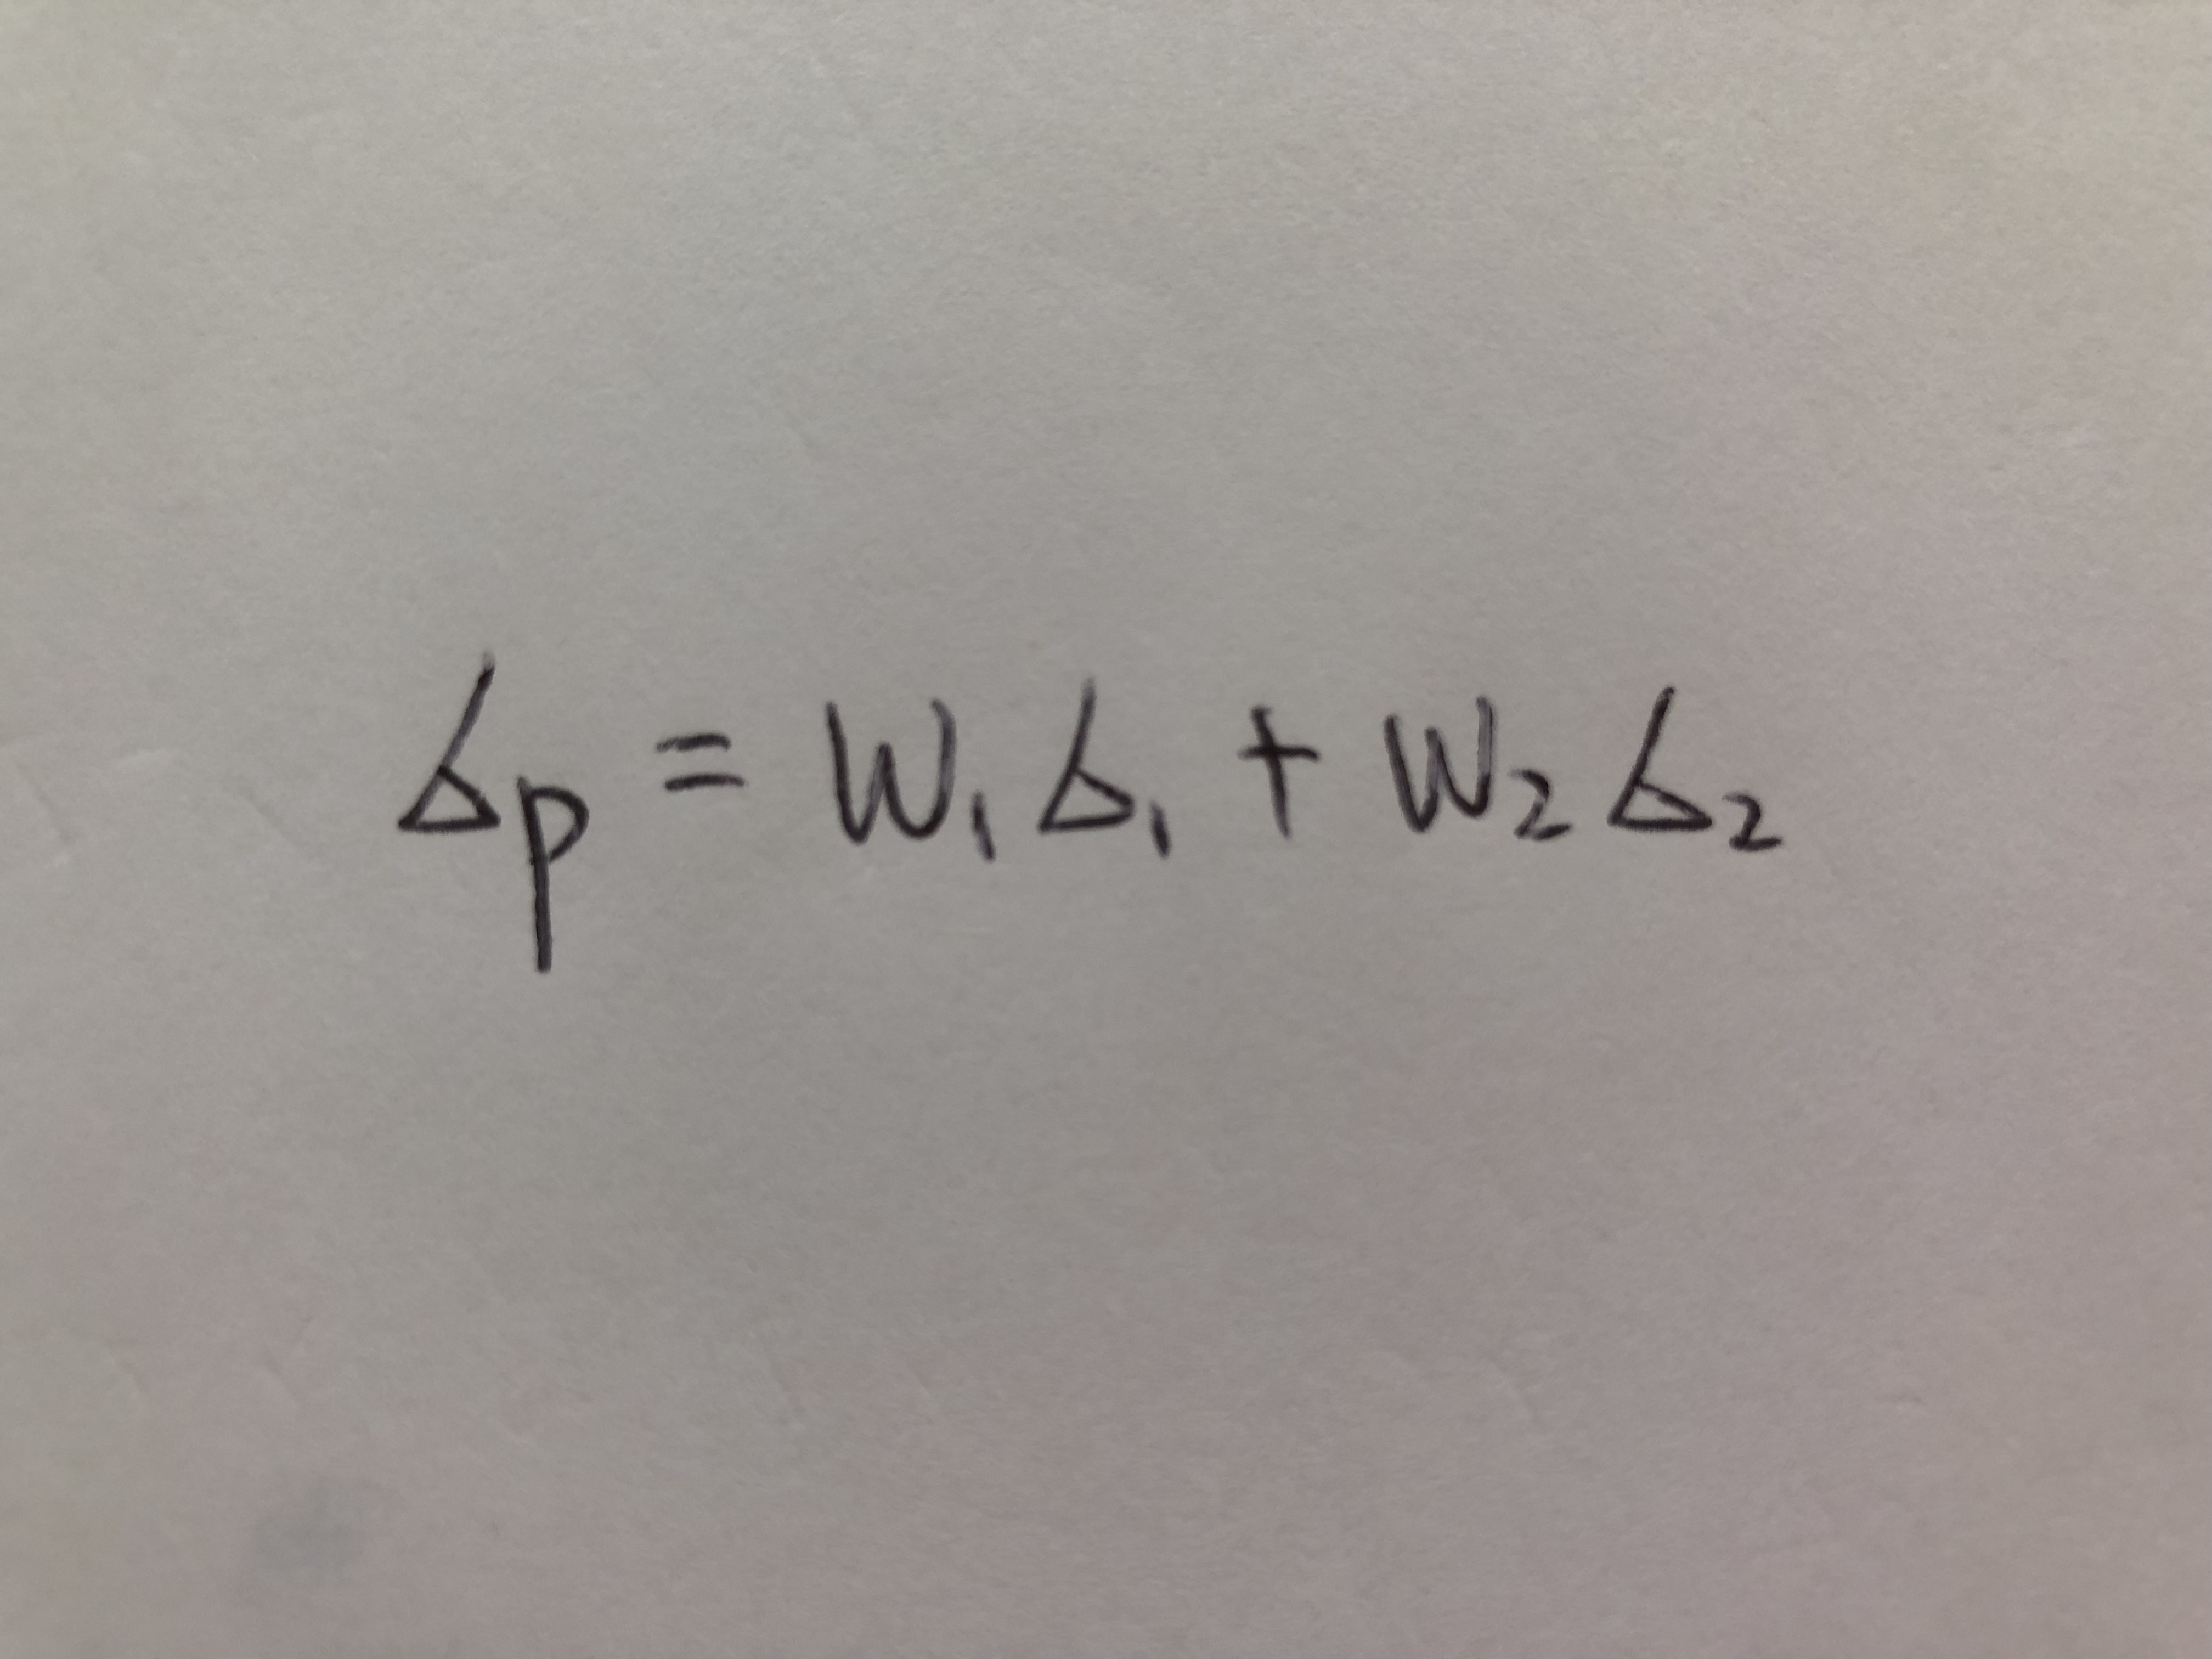 Δp = W₁Δ₁ + W₂Δ₂